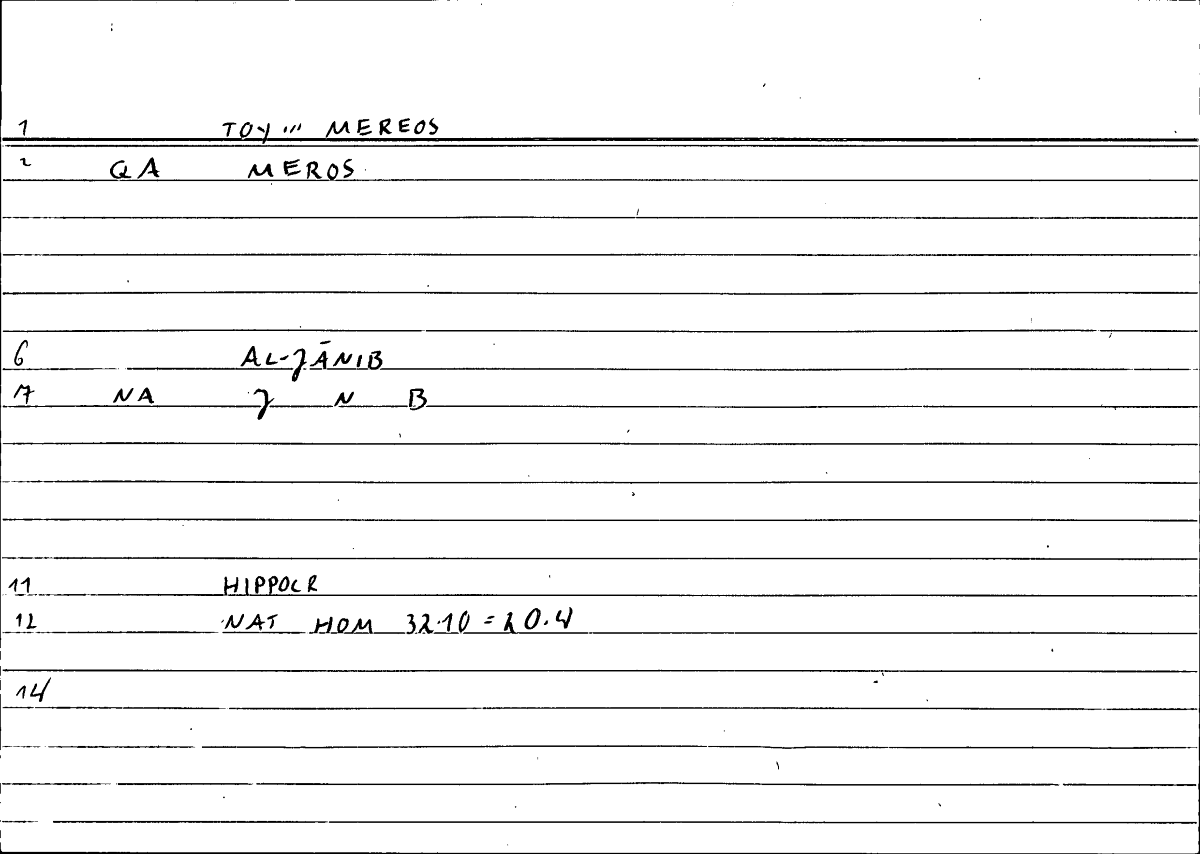 1 TOY ''' MEREOS
2 QA MEROS
6 AL-ʒĀNIB
7 NA ʒ N B
11 HIPPOCR
12 NAT HOM 32.10 = 20.4
14